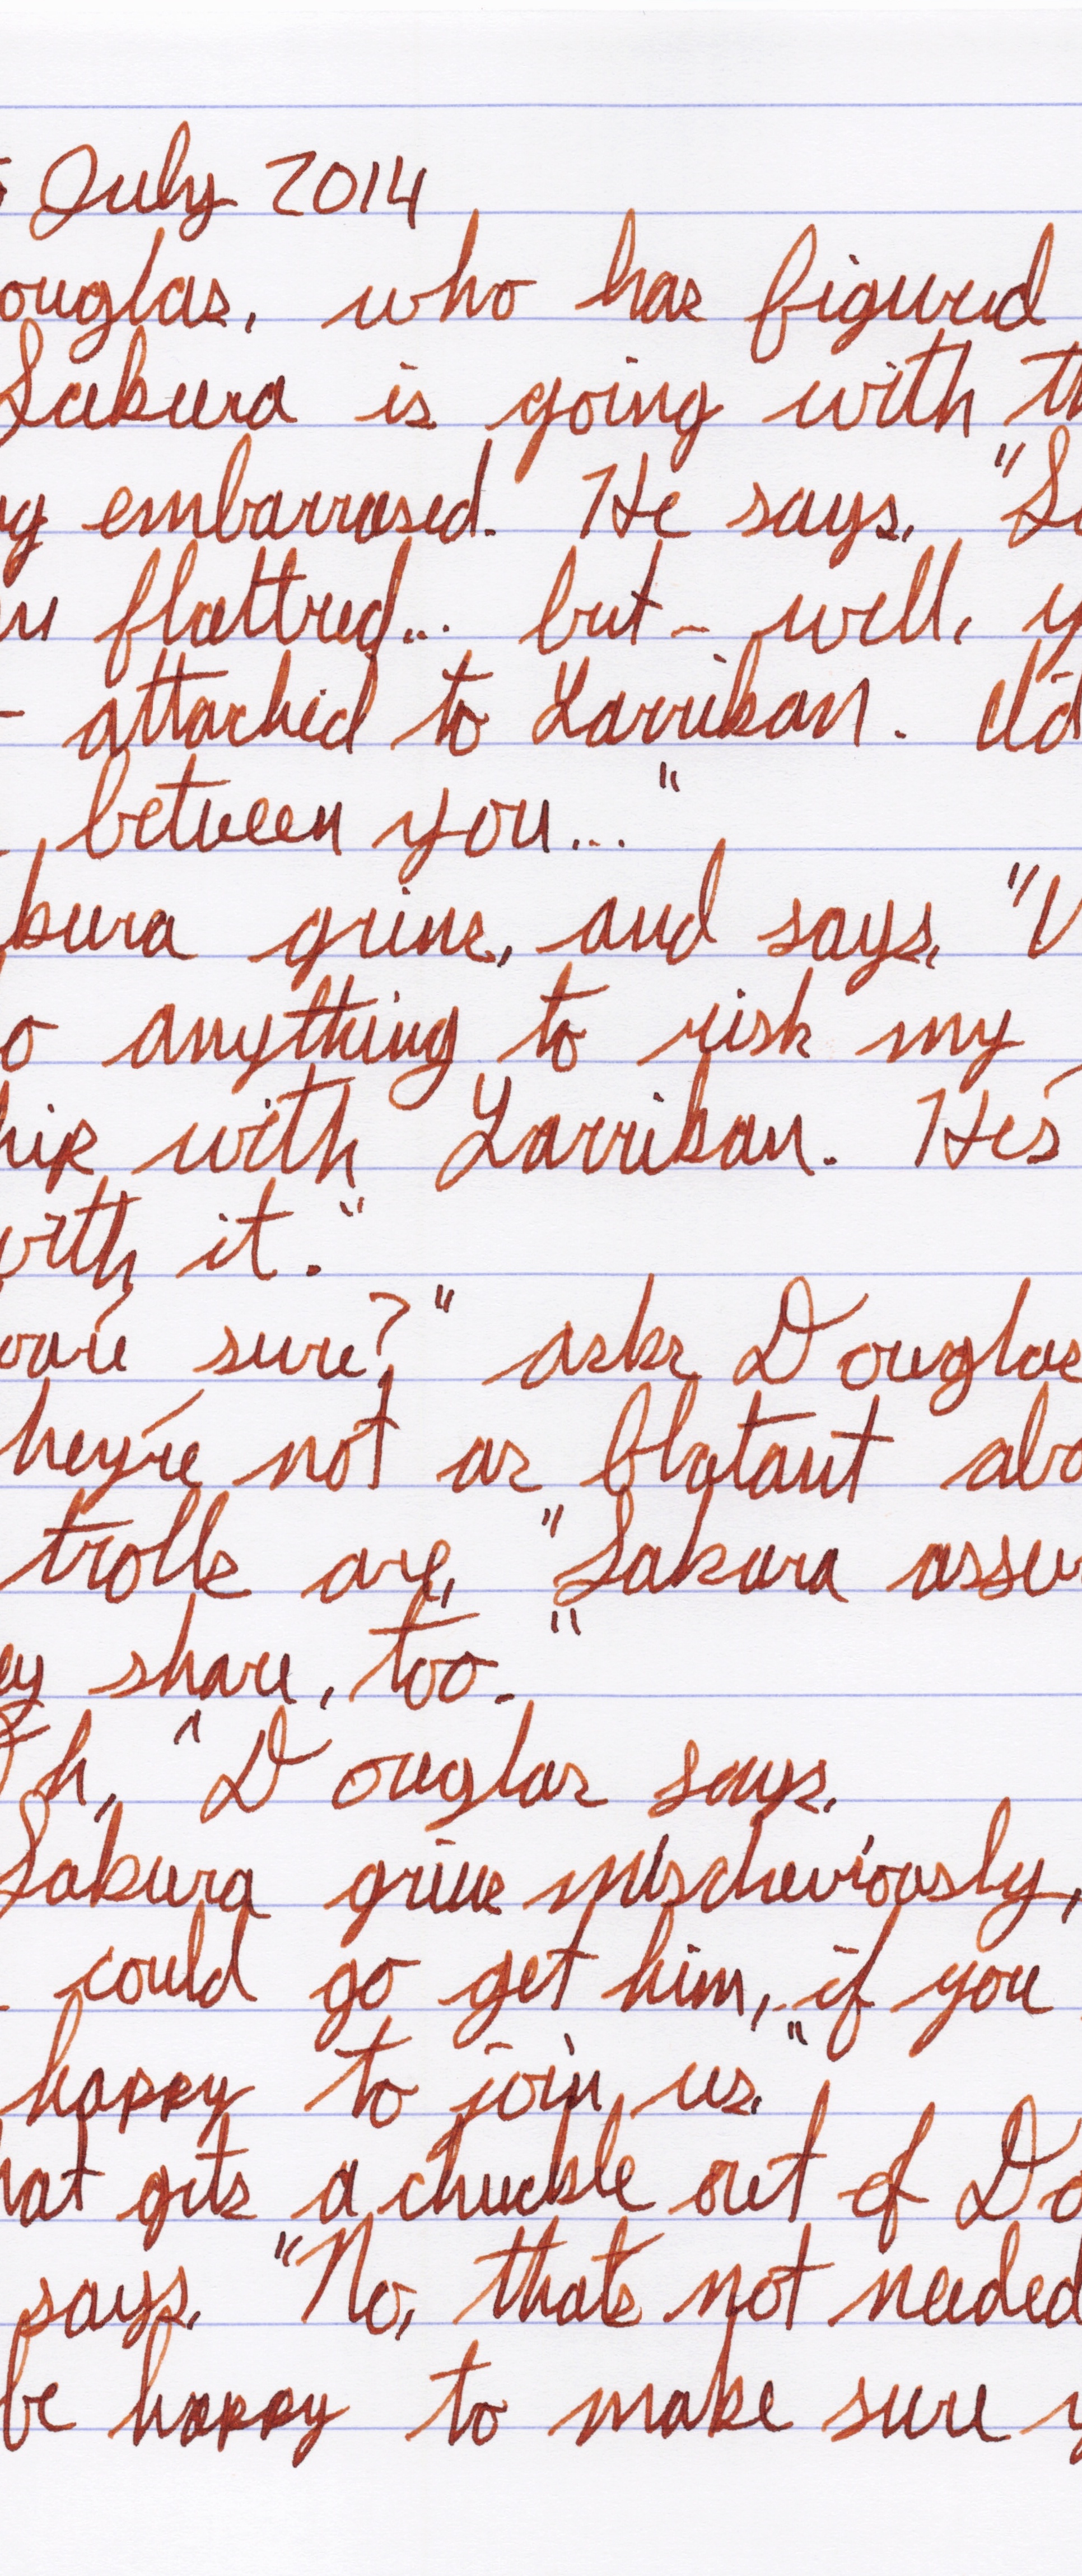 July 2014
ouglas, who has figured
Sakura is going with th
embarrased. He says, "S
flattred... but - well, y
- attached to Larrikan. I'd
between you..."
kura grins, and says, "W
o anything to risk my
hip with Larrikan. He's
with it."
ou're sure?" asks Douglas
hey're not as blatant abo
trolls are," Sakura assur
ey share, too."
Oh," Douglas says.
Sakura grins mischeviously,
could go get him, if you
happy to join us."
hat gets a chuckle out of Do
says, "No, that's not needed
be happy to make sure y